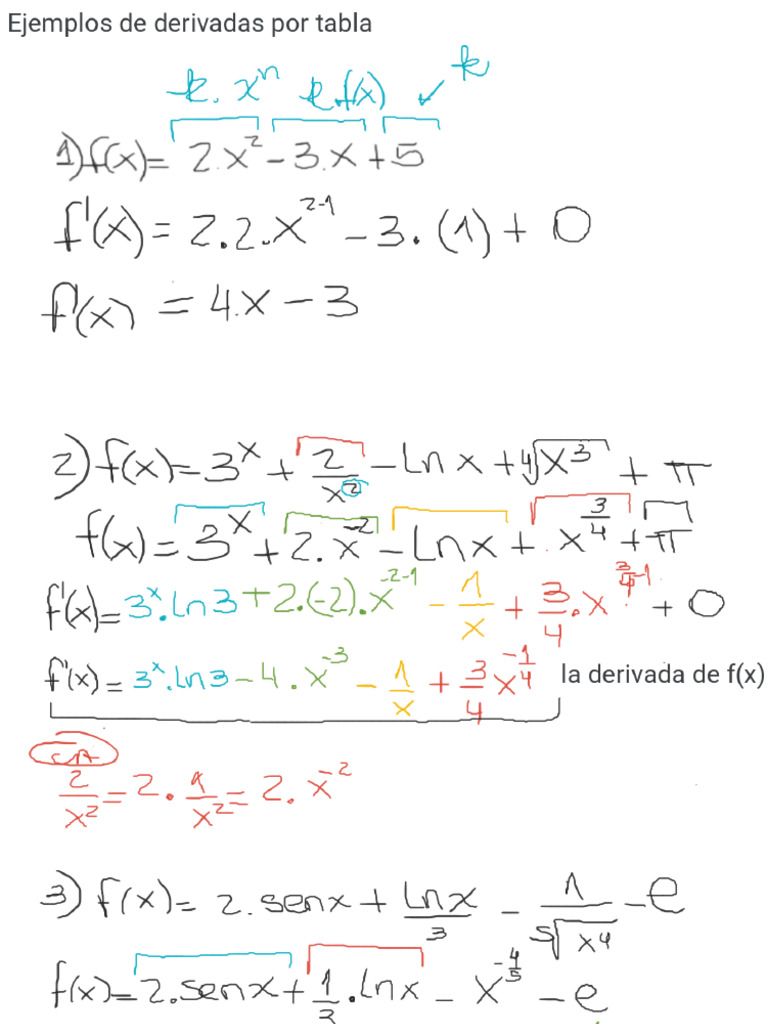 Ejemplos de derivadas por tabla
k. xⁿ k.f(x) ✓ k
1) f(x)= 2.x² - 3.x + 5
f'(x) = 2.2.x²⁻¹ - 3.(1) + 0
f'(x) = 4.x - 3
2) f(x)= 3ˣ + 2/x² - Ln x + ⁴√x³ + π
f(x) = 3ˣ + 2.x⁻² - Ln x + x^(3/4) + π
f'(x)= 3ˣ.ln 3 + 2.(-2).x⁻²⁻¹ - 1/x + 3/4.x^(3/4-1) + 0
f'(x) = 3ˣ.ln3 - 4.x⁻³ - 1/x + 3/4 x^(-1/4) la derivada de f(x)
CA
2/x² = 2.1/x² = 2.x⁻²
3) f(x)= 2.senx + Lnx/3 - 1/⁵√x⁴ - e
f(x)= 2.senx + 1/3.Lnx - x^(-4/5) - e